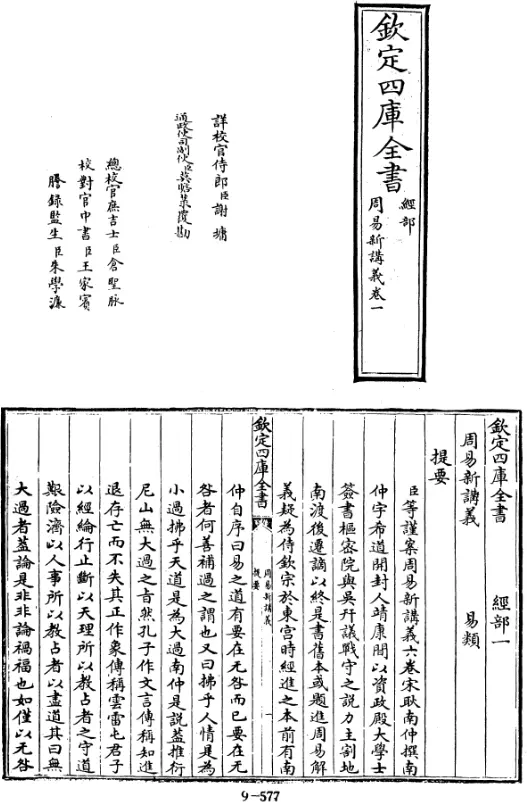 欽定四庫全書
經部
周易新講義卷一
詳校官侍郎臣謝墉
通政使司副使臣莫瞻菉覆勘
總校官庶吉士臣倉聖脉
校對官中書臣王家賓
謄録監生臣朱學濂
欽定四庫全書 經部一
周易新講義 易類
提要
臣等謹案周易新講義六卷宋耿南仲撰南
仲字希道開封人靖康間以資政殿大學士
簽書樞密院與吳幵議戰守之説力主割地
南渡後遷謫以終是書舊本或題進周易解
義疑為侍欽宗於東宮時經進之本前有南
欽定四庫全書
周易新講義
提要
一
仲自序曰易之道有要在无咎而已要在无
咎者何善補過之謂也又曰拂乎人情是為
小過拂乎天道是為大過南仲是説蓋推衍
尼山無大過之㫖然孔子作文言傳稱知進
退存亡而不失其正作象傳稱雲雷屯君子
以經綸行止斷以天理所以教占者之守道
艱險濟以人事所以教占者以盡道其曰無
大過者蓋論是非非論禍福也如僅以无咎
9-577